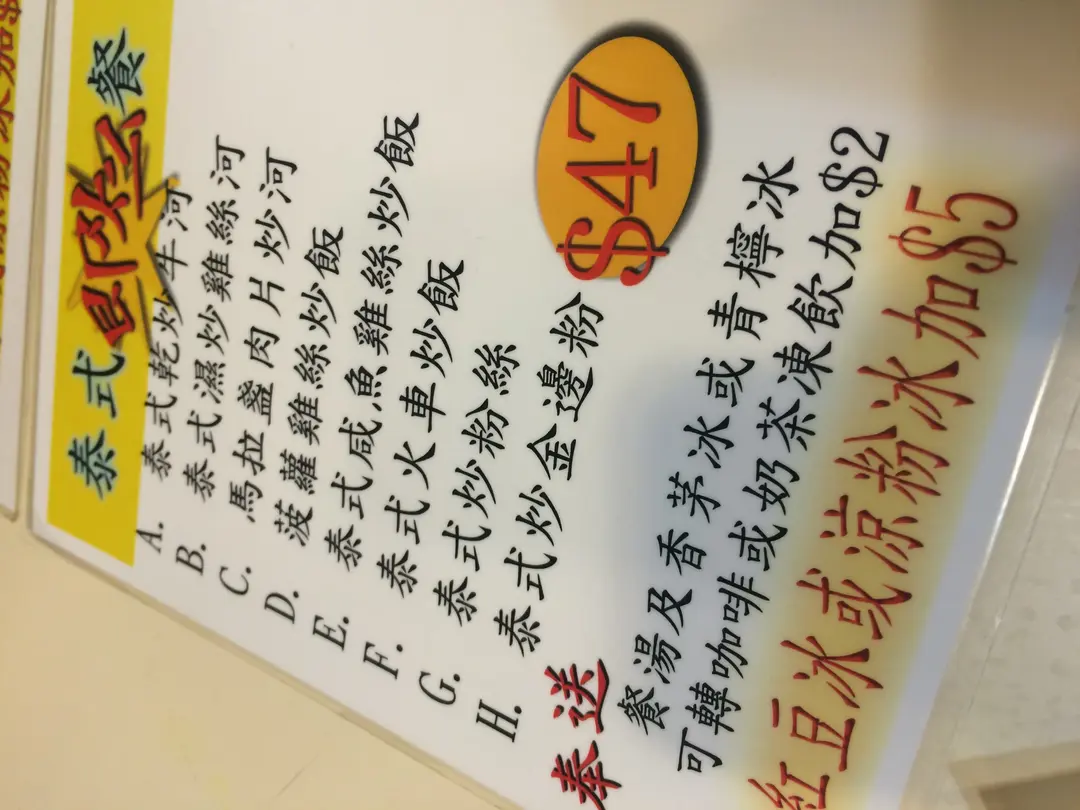 泰式即炒餐
A. 泰式乾炒牛河
B. 泰式濕炒雞絲河
C. 馬拉盞肉片炒河
D. 菠蘿雞絲炒飯
E. 泰式咸魚雞絲炒飯
F. 泰式火車炒飯
G. 泰式炒粉絲
H. 泰式炒金邊粉
$47
奉送
餐湯及香茅冰或青檸冰
可轉咖啡或奶茶凍飲加$2
紅豆冰或涼粉冰加$5